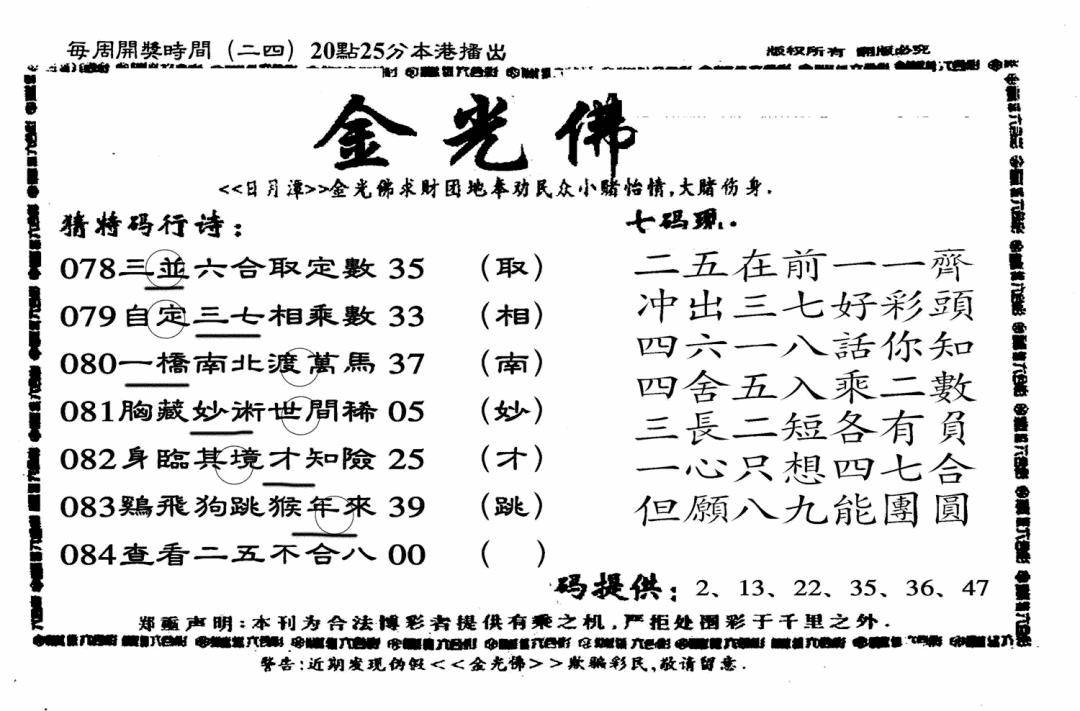 每周開獎時間（二四）20點25分本港播出
版权所有 翻版必究
金光佛
<<日月潭>>金光佛求财团地奉劝民众小赌怡情,大赌伤身.
猜特码行诗：
078三並六合取定數 35 （取）
079自定三七相乘數 33 （相）
080一橋南北渡萬馬 37 （南）
081胸藏妙術世間稀 05 （妙）
082身臨其境才知險 25 （才）
083鷄飛狗跳猴年來 39 （跳）
084查看二五不合八 00 （ ）
七码现..
二五在前一一齊
冲出三七好彩頭
四六一八話你知
四舍五入乘二數
三長二短各有負
一心只想四七合
但願八九能團圓
码提供：2、13、22、35、36、47
郑重声明:本刊为合法博彩者提供有乘之机,严拒处图彩于千里之外.
警告:近期发现伪假<<金光佛>>欺骗彩民,敬请留意.